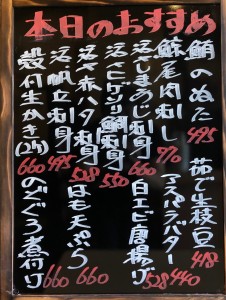 本日のおすすめ
鮪のぬた 495
鯨尾肉刺し 770
活〆しまあじ刺身 660
活〆ヒゲソリ鯛刺身 550
活〆赤ハタ刺身 528
活帆立刺身 495
殻付生かき(2ケ) 660
茹で生枝豆 418
アスパラバター 440
白エビ唐揚げ 528
はも天ぷら 660
のどぐろ煮付け 660